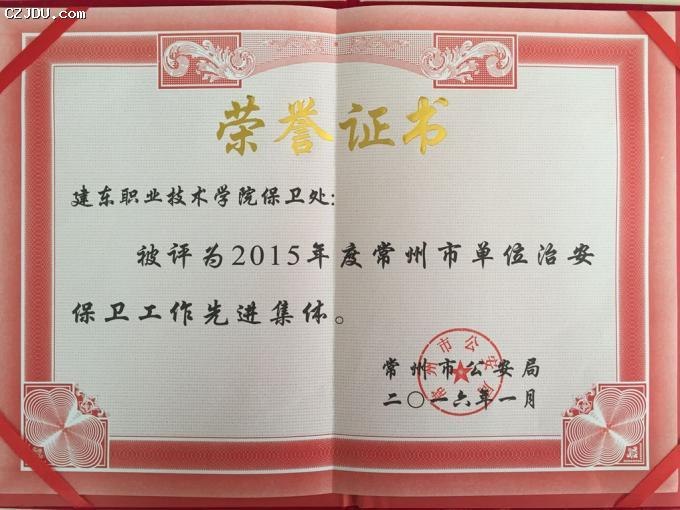 CZJDU.com
荣誉证书
建东职业技术学院保卫处:
被评为2015年度常州市单位治安
保卫工作先进集体。
常州市公安局
二〇一六年一月
常州市公安局